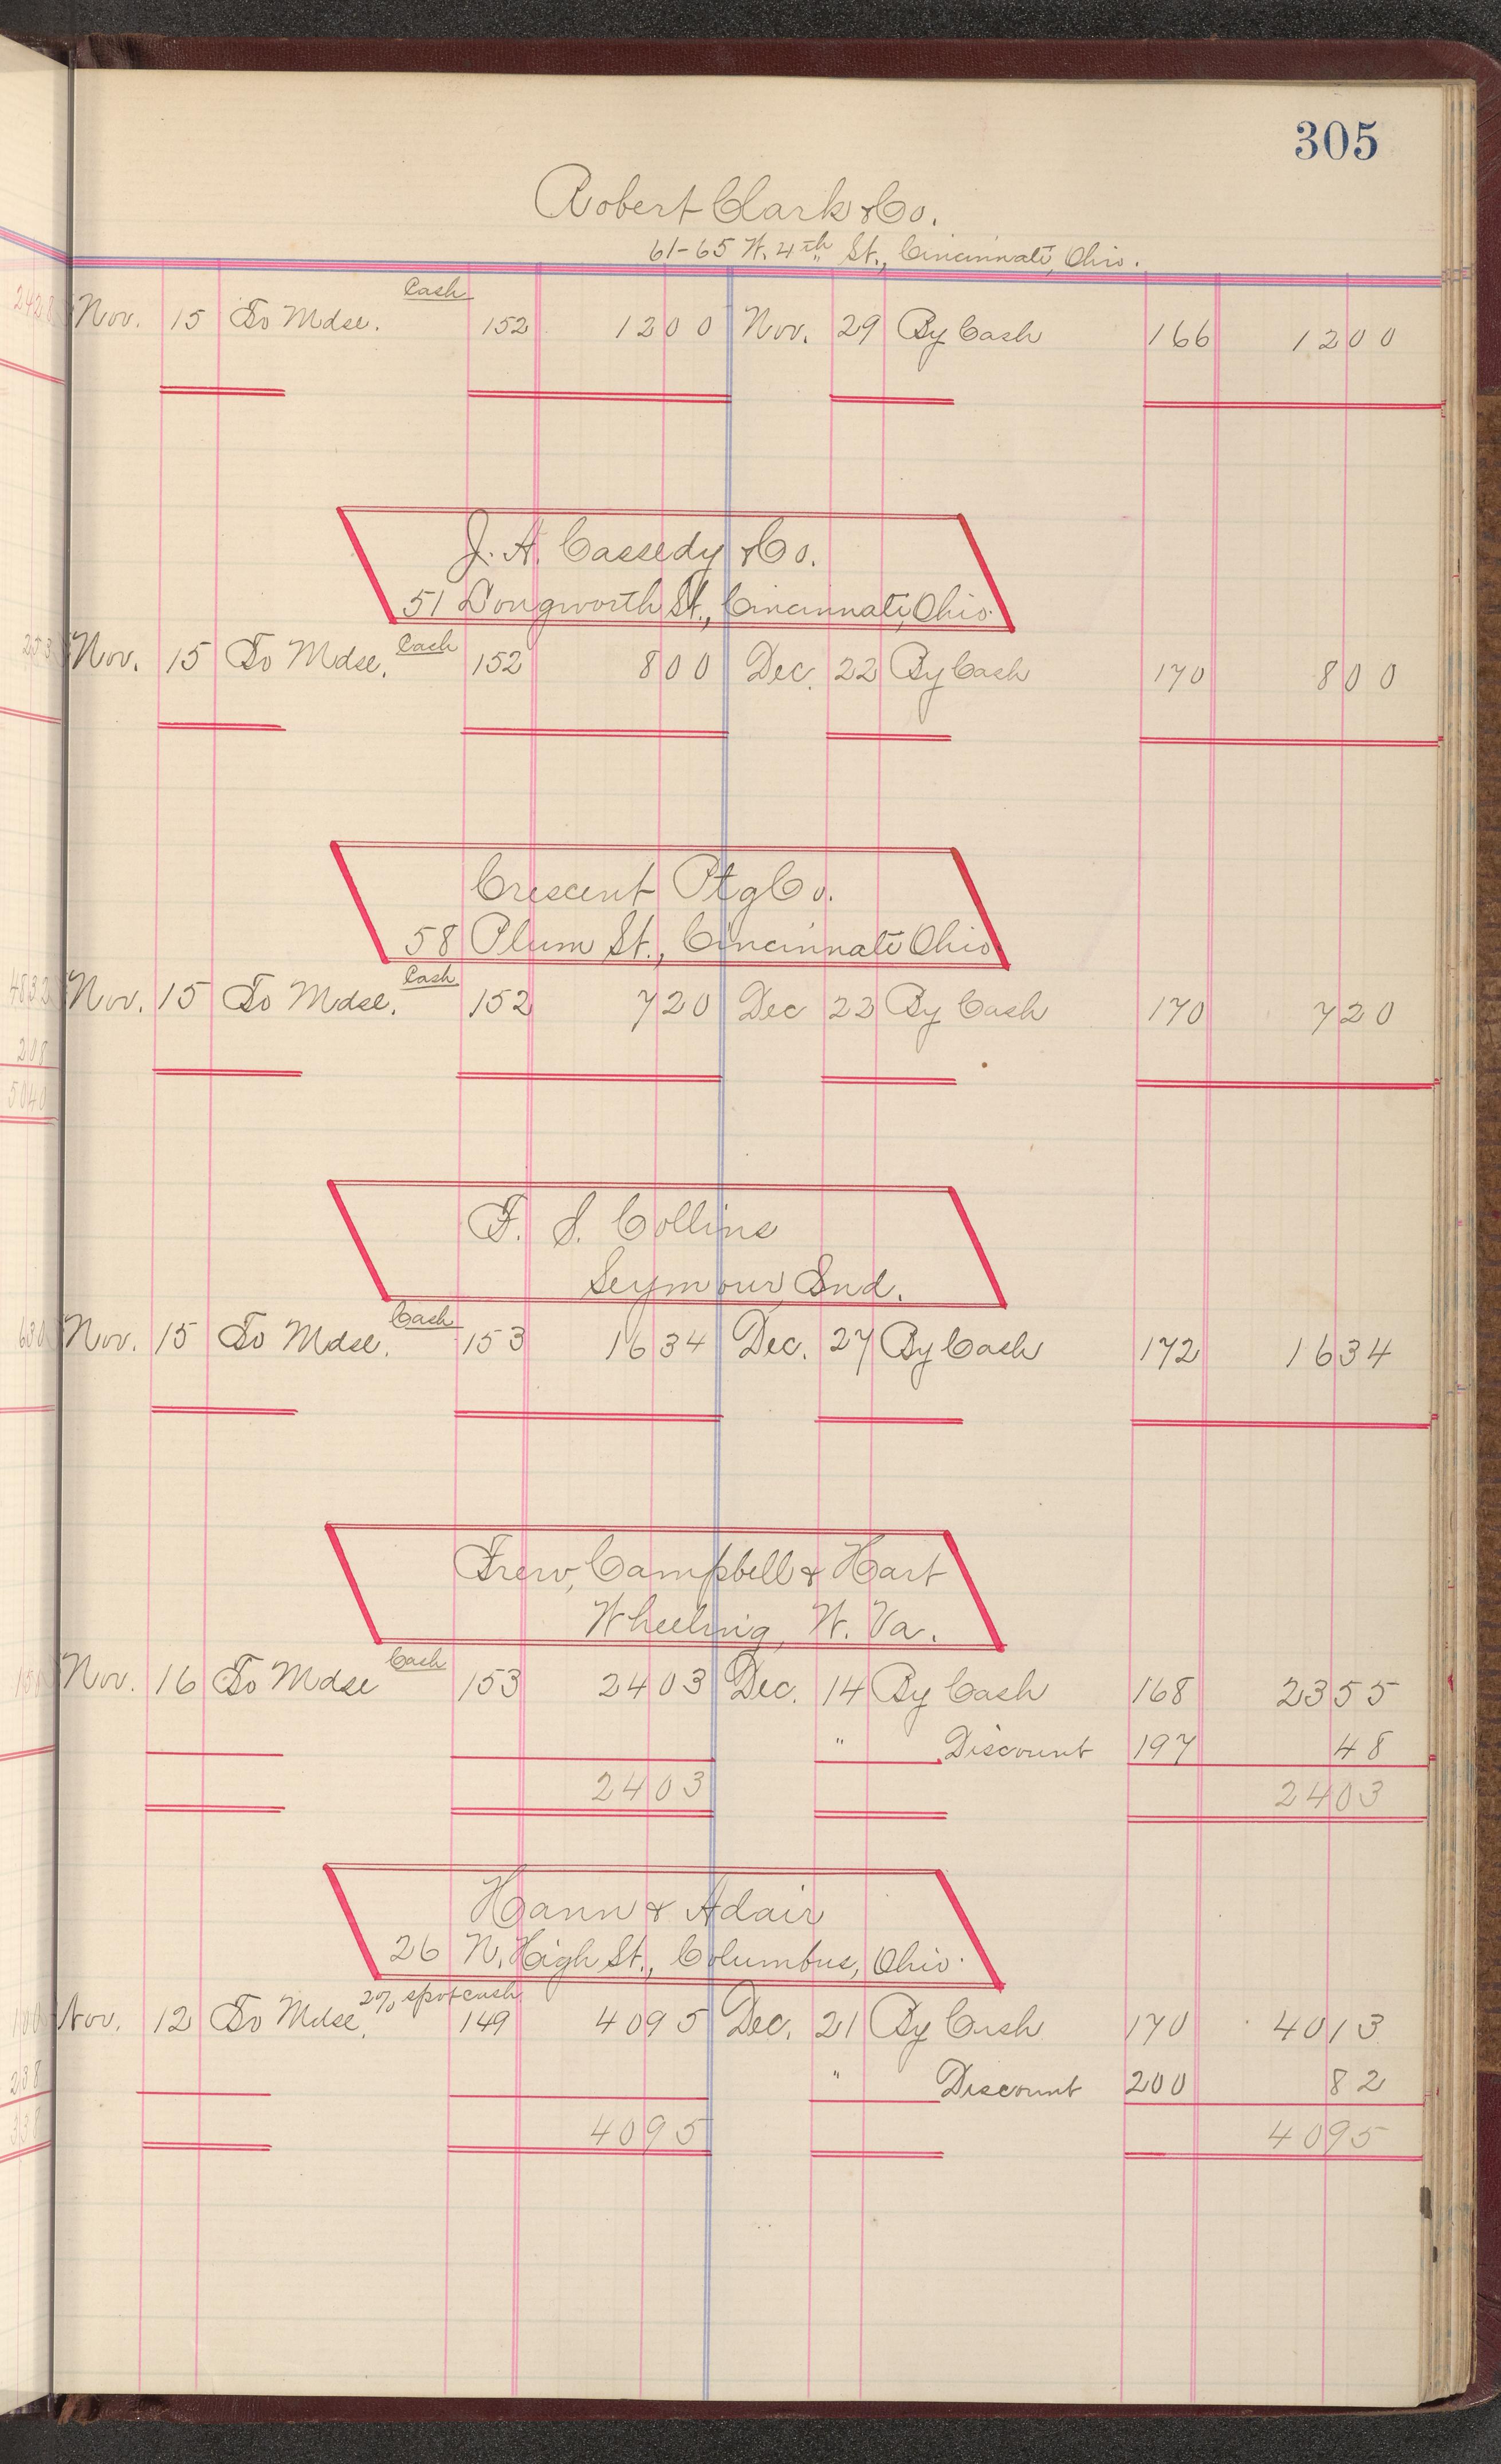 305
Robert Clark & Co.
61-65 W. 4th St., Cincinnati, Ohio.
Nov. 15 To Mdse. Cash 152 1200 Nov. 29 By Cash 166 1200
J. A. Cassedy & Co.
51 Longworth St., Cincinnati, Ohio.
Nov. 15 To Mdse. Cash 152 800 Dec. 22 By Cash 170 800
Crescent Ptg Co.
58 Plum St., Cincinnati Ohio.
Nov. 15 To Mdse. Cash 152 720 Dec 22 By Cash 170 720
F. S. Collins
Seymour, Ind.
Nov. 15 To Mdse. Cash 153 1634 Dec. 27 By Cash 172 1634
Frew, Campbell & Hart
Wheeling, W. Va.
Nov. 16 To Mdse Cash 153 2403 Dec. 14 By Cash 168 2355
" Discount 197 48
2403 2403
Hann & Adair
26 N. High St., Columbus, Ohio.
Nov. 12 To Mdse. 2% spot cash 149 4095 Dec. 21 By Cash 170 4013
" Discount 200 82
4095 4095